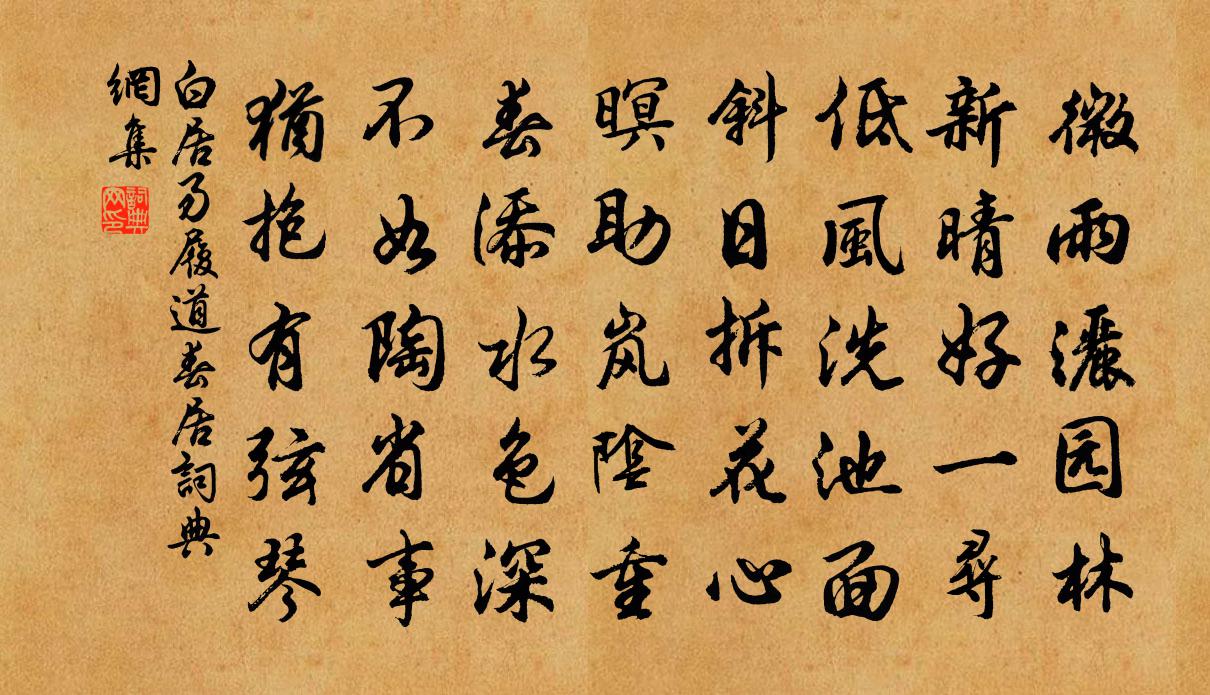 微雨灑园林
新晴好一尋
低風洗池面
斜日拆花心
暝助岚陰重
春添水色深
不如陶省事
猶抱有弦琴
白居易履道春居詞典
網集
詞典
网印